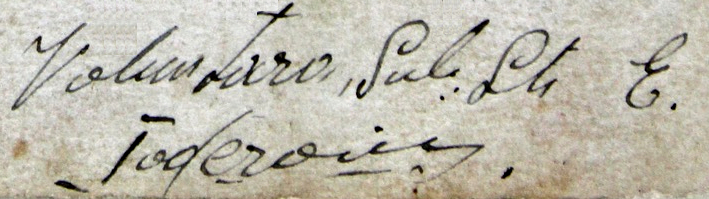 Voluntara, Sub. Lt. E.
Toderoiu.